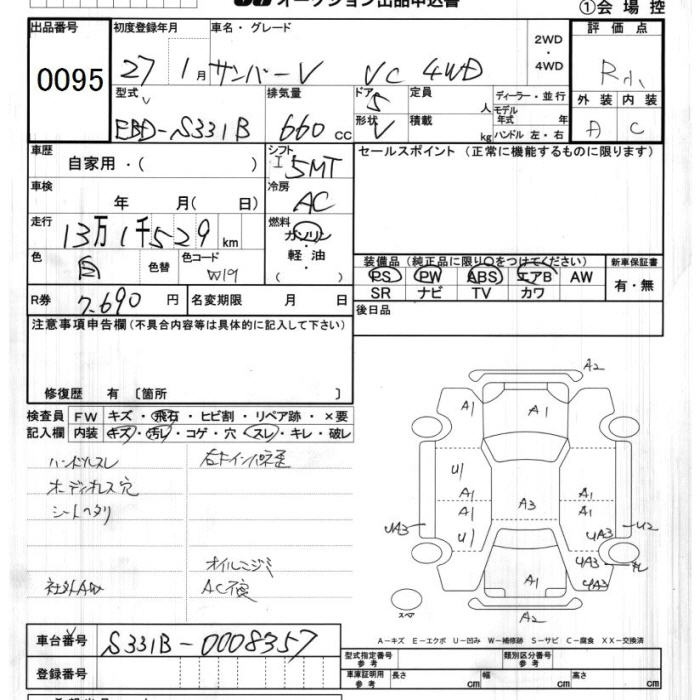 オークション出品申込書 ①会場控
出品番号 初度登録年月 車名・グレード 2WD ・ 4WD 評価点
0095 27 1月 サンバーV VC 4WD R小
型式 排気量 ドア 定員 人 ディーラー・並行 外装 内装
EBD-S331B 660 cc 5 形状 V 積載 kg モデル年式 年 ハンドル 左・右 A C
車歴 自家用・( ) シフト I 5MT セールスポイント (正常に機能するものに限ります)
車検 年 月( 日) 冷房 AC
走行 13万1千529 km 燃料 ガソリン ・ 軽油 ( )
色 白 色替 色コード W19
装備品(純正品に限り○をつけてください) 新車保証書
PS PW ABS エアB AW 有・無
SR ナビ TV カワ
R券 7,690 円 名変期限 月 日 後日品
注意事項申告欄(不具合内容等は具体的に記入して下さい)
修復歴 有 〔箇所 〕
検査員 FW キズ・飛石・ヒビ割・リペア跡・×要
記入欄 内装 キズ・汚レ・コゲ・穴・スレ・キレ・破レ
ハンドルスレ
オーディオレス穴
シートヘタリ
オイルニジミ
社外AW AC不良
A2
A1 A1
U1 A1 A3 A1
A1 A1
UA3 U1 UA3 U2
UA3
A1 UA3
スペア A2
A-キズ E-エクボ U-凹み W-補修跡 S-サビ C-腐食 XX-交換済
車台番号 S331B-0008357
登録番号
型式指定番号 参考 類別区分番号 参考
車庫証明用 参考 長さ cm 幅 cm 高さ cm